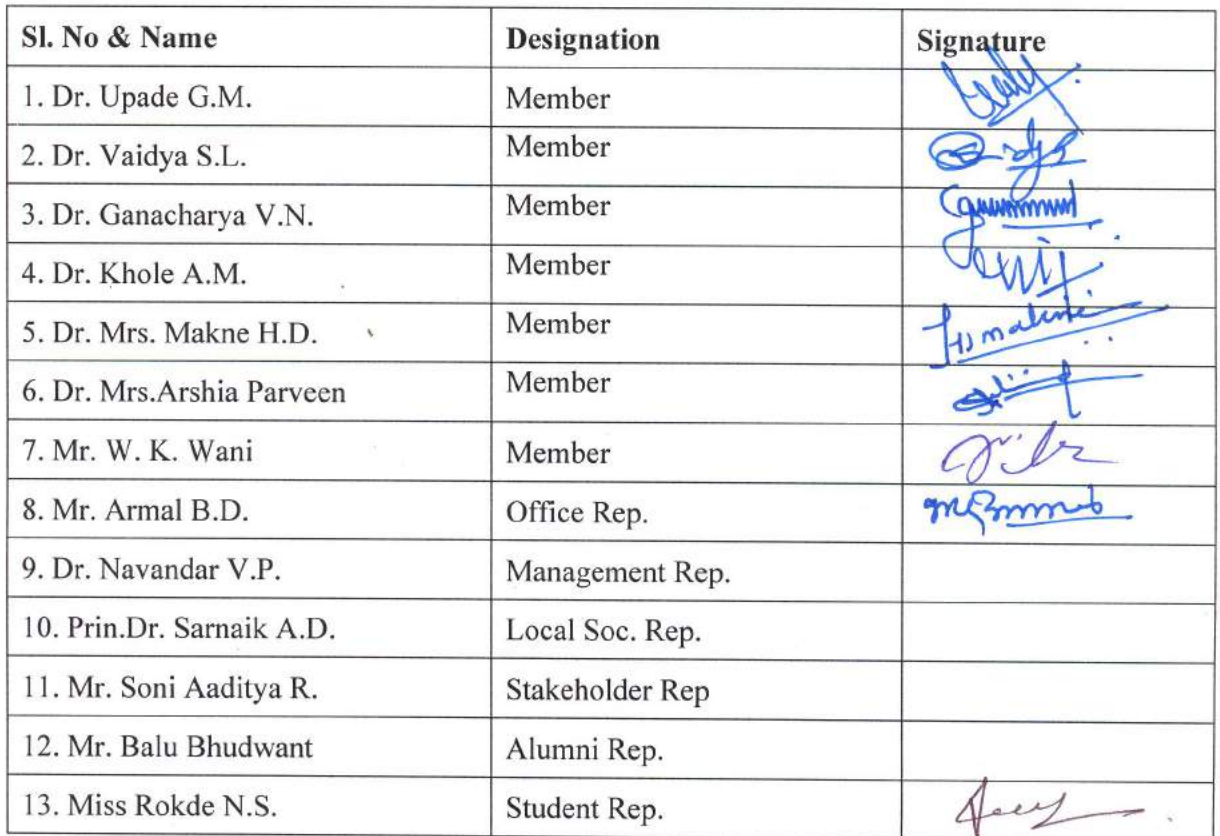 Sl. No & Name Designation Signature
1. Dr. Upade G.M. Member
2. Dr. Vaidya S.L. Member
3. Dr. Ganacharya V.N. Member
4. Dr. Khole A.M. Member
5. Dr. Mrs. Makne H.D. Member
6. Dr. Mrs.Arshia Parveen Member
7. Mr. W. K. Wani Member
8. Mr. Armal B.D. Office Rep.
9. Dr. Navandar V.P. Management Rep.
10. Prin.Dr. Sarnaik A.D. Local Soc. Rep.
11. Mr. Soni Aaditya R. Stakeholder Rep
12. Mr. Balu Bhudwant Alumni Rep.
13. Miss Rokde N.S. Student Rep.